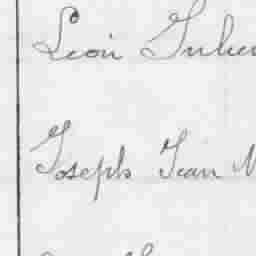 Léon Jules
Joseph Jean